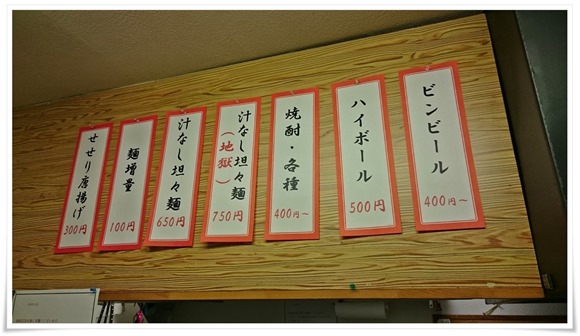 ビンビール
400円～
ハイボール
500円
焼酎・各種
400円～
汁なし坦々麺
（地獄）
750円
汁なし坦々麺
650円
麺増量
100円
せせり唐揚げ
300円